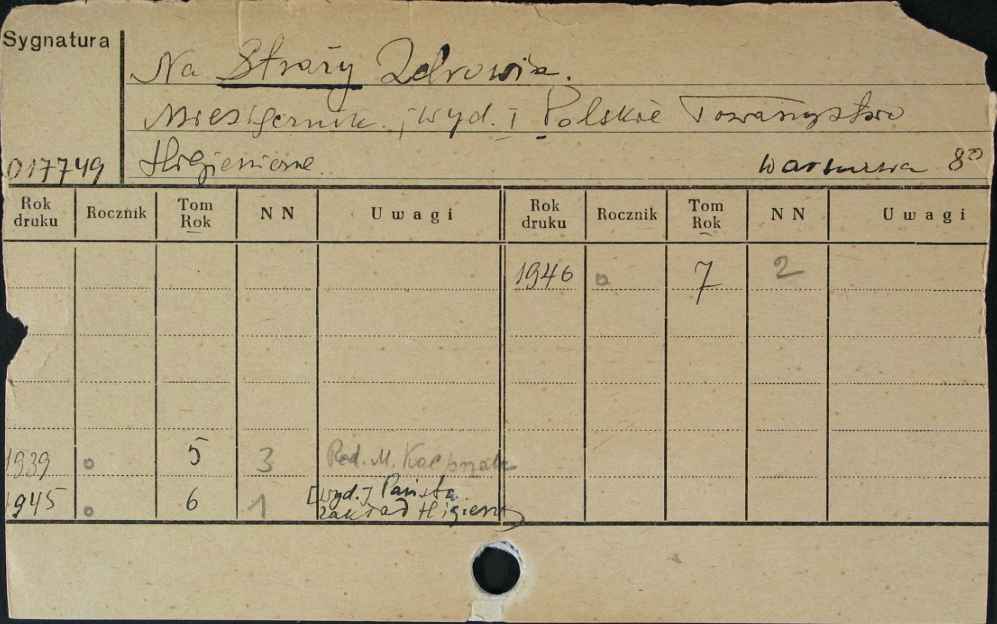 Sygnatura
Na Straży Zdrowia.
Miesięcznik. ; wyd. : Polskie Towarzystwo
017749 Higieniczne. Warszawa 8°
Rok druku Rocznik Tom Rok NN Uwagi Rok druku Rocznik Tom Rok NN Uwagi
1946 7 2
1939 5 3 Red. M. Kacprzak
1945 6 1 [wyd.] Państw.
Zakład Higieny